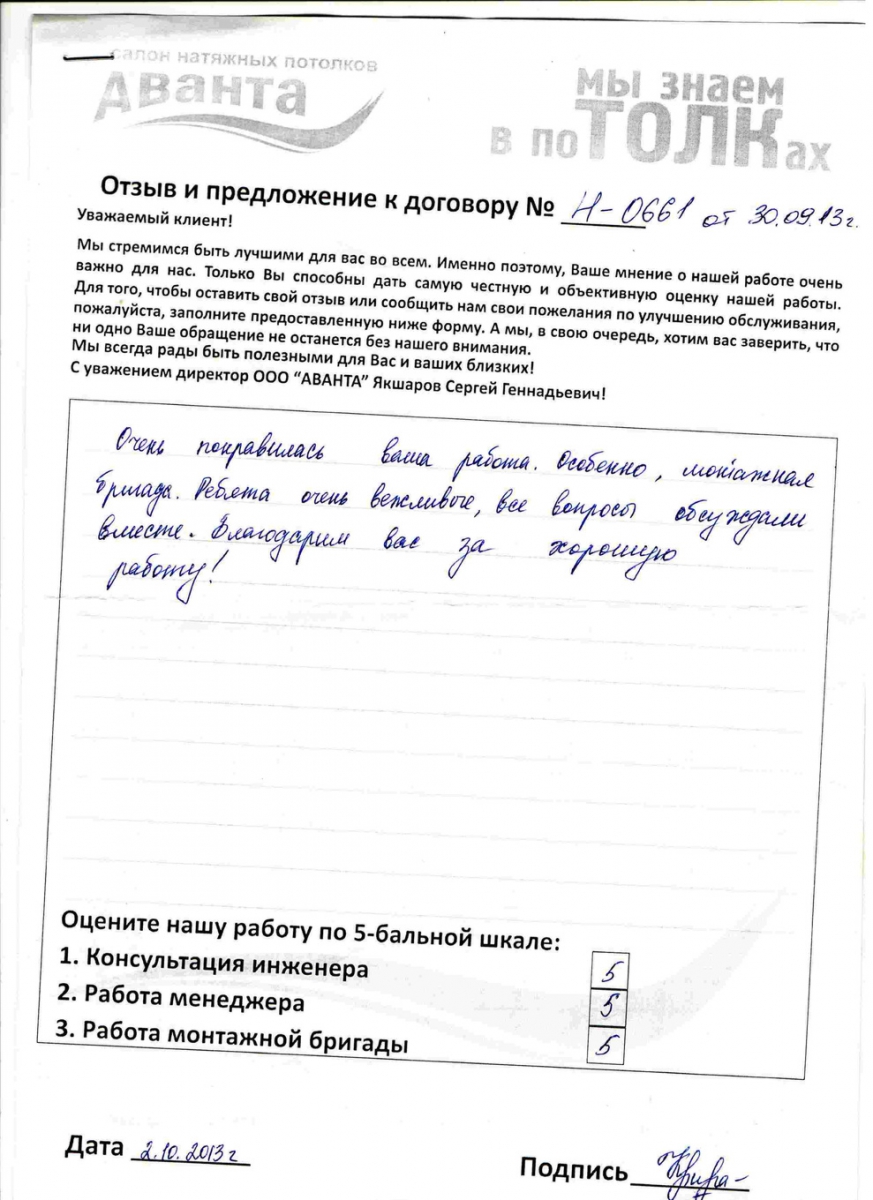 салон натяжных потолков
Аванта
мы знаем
в поТОЛКах
Отзыв и предложение к договору № Н-0661 от 30.09.13г.
Уважаемый клиент!
Мы стремимся быть лучшими для вас во всем. Именно поэтому, Ваше мнение о нашей работе очень
важно для нас. Только Вы способны дать самую честную и объективную оценку нашей работы.
Для того, чтобы оставить свой отзыв или сообщить нам свои пожелания по улучшению обслуживания,
пожалуйста, заполните предоставленную ниже форму. А мы, в свою очередь, хотим вас заверить, что
ни одно Ваше обращение не останется без нашего внимания.
Мы всегда рады быть полезными для Вас и ваших близких!
С уважением директор ООО “АВАНТА” Якшаров Сергей Геннадьевич!
Очень понравилась ваша работа. Особенно, монтажная
бригада. Ребята очень вежливые, все вопросы обсуждали
вместе. Благодарим вас за хорошую
работу!
Оцените нашу работу по 5-бальной шкале:
1. Консультация инженера 5
2. Работа менеджера 5
3. Работа монтажной бригады 5
Дата 2.10.2013г
Подпись